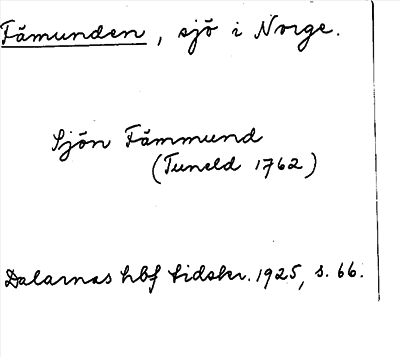 Fämunden, sjö i Norge.
Sjön Fämmund
(Tuneld 1762)
Dalarnas hbf tidskr. 1925, s. 66.